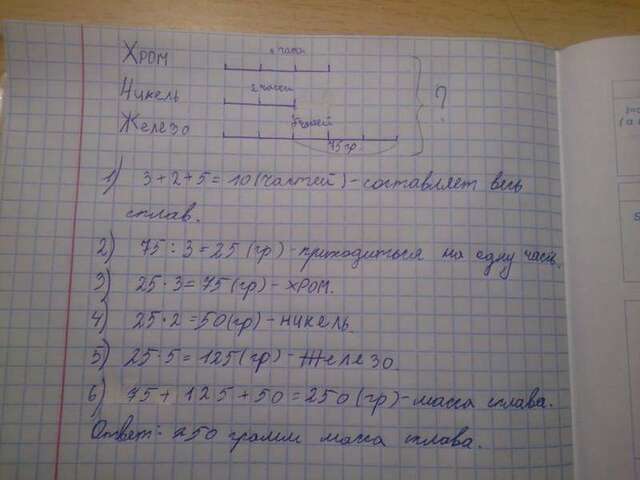 Хром 3 части
Никель 2 части
Железо 5 частей ?
75 гр.
1) 3+2+5=10 (частей) - составляет весь
сплав.
2) 75:3=25 (гр) - приходиться на одну часть.
3) 25·3=75 (гр) - хром.
4) 25·2=50 (гр) - никель.
5) 25·5=125 (гр) - Железо.
6) 75+125+50=250 (гр) - масса сплава.
Ответ: 250 грамм масса сплава.